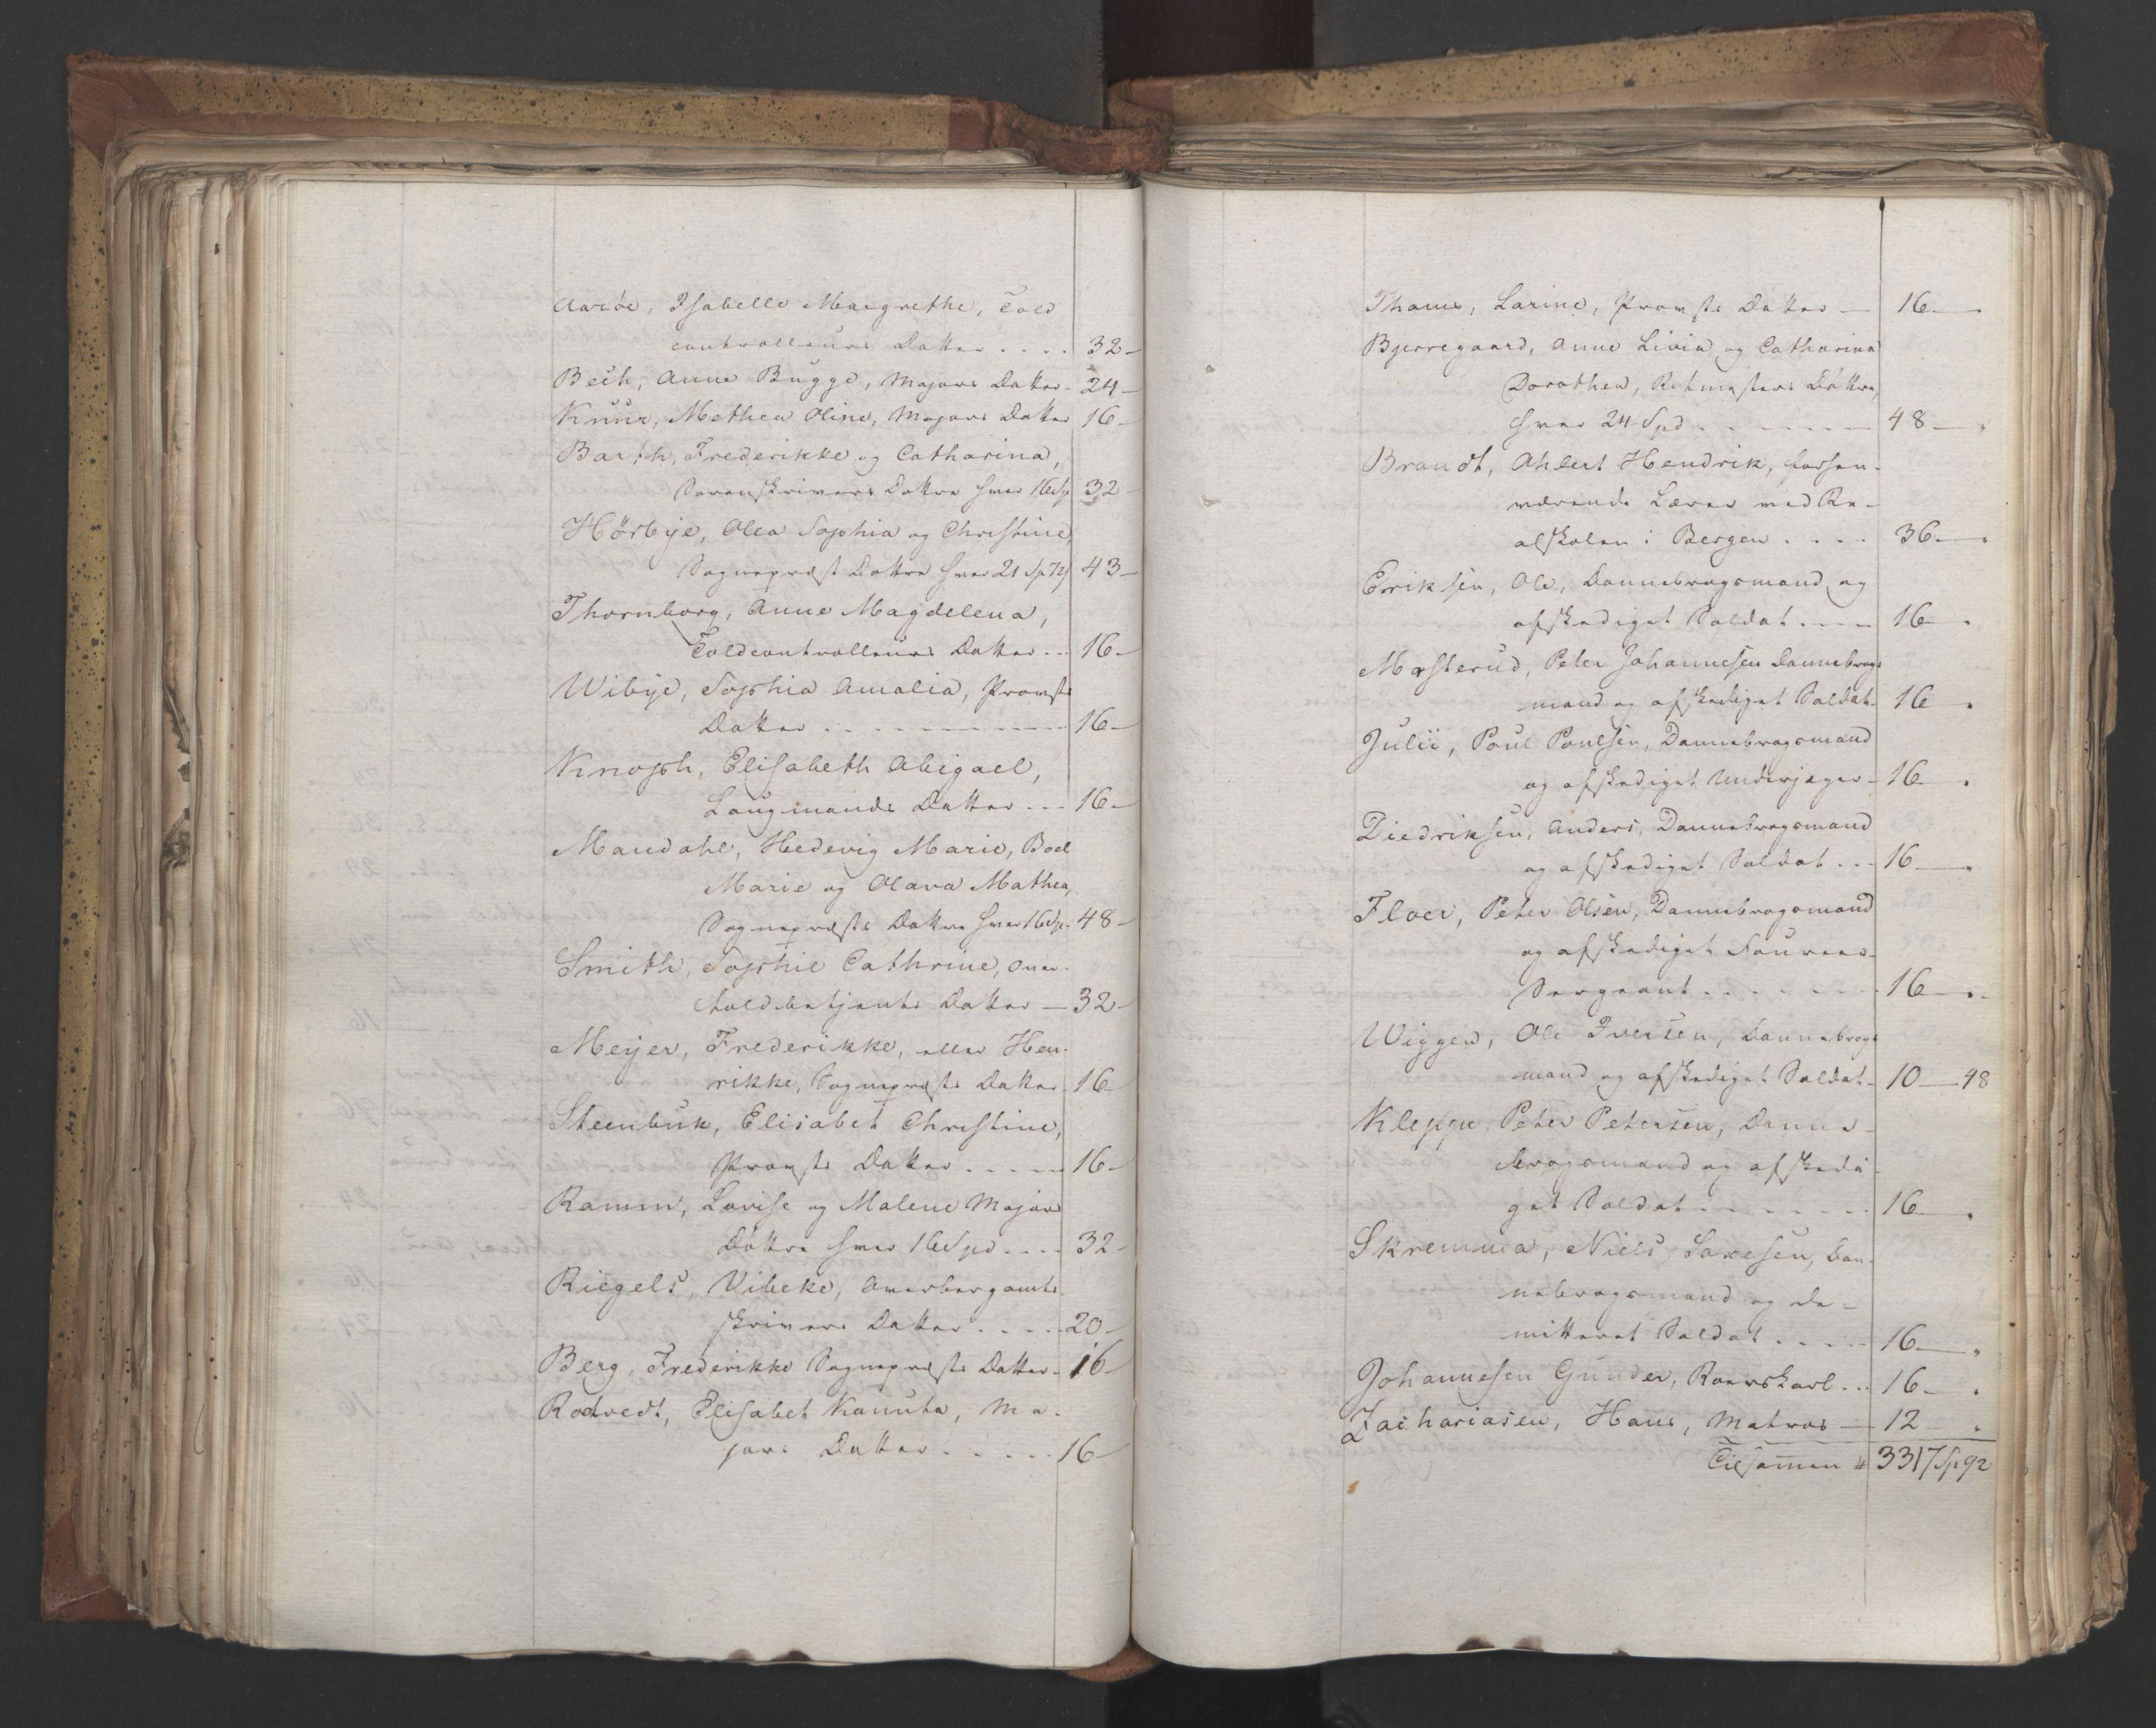 Aarøe, Isabelle Margrethe, Told
controlleurs Datter .... 32-
Bech, Anne Bugge, Majors Datter- 24-
Knuur, Methea Oline, Majors Datter 16-
Barth, Frederikke og Catharina,
Sorenskrivers Døttre hver 16 Sp 32-
Hörbye, Olea Sophia og Christine,
Sognepræst Døttre hver 21 Sp 72 ß 43-
Thornborg, Anne Magdelena,
Toldcontrolleurs Datter... 16-
Wibye, Sophia Amalia, Provsts
Datter .......... 16-
Knoph, Elisabeth Abigael,
Laugmands Datter ... 16-
Mandahl, Hedevig Marie, Boel
Marie og Olava Mathea,
Sognepræsts Døttre hver 16 Sp. 48-
Smith, Sophie Cathrine, Over-
toldbetjents Datter — 32-
Meyer, Frederikke, eller Hen-
rikke, Sognepræsts Datter 16
Steenbuk, Elisabet Christine,
Provsts Datter ..... 16-
Ramm, Lovise og Malene Majors
Döttre hver 16 Spd .... 32-
Riegels, Vibeke, Overbergamts-
skrivers Datter .... 20-
Berg, Frederikke Sognepræsts Datter- 16-
Rodvedt, Elisabet Kanuta, Ma-
jors Datter ..... 16-
Thams, Larine, Provsts Datter — 16—
Bjerregaard, Anne Livia og Catharina
Dorothea, Ritmesters Döttre,
hver 24 Spd ...... 48—
Brandt, Ahlert Hendrik, forhen-
værende Lærer ved Re-
alskolen i Bergen .... 36—
Eriksen, Ole, Dannebrogsmand og
afskediget Soldat .... 16—
Mosterud, Peter Johannesen Dannebrogs
mand og afskediget Soldat- 16
Julii, Poul Poulsen, Dannebrogsmand
og afskediget Underjæger- 16-
Diedriksen, Anders, Dannebrogsmand
og afskediget Soldat ... 16—
Floer, Peter Olsen, Dannebrogsmand
og afskediget Foureer-
Sergeant ....... 16—
Wiggen, Ole Iversen, Dannebrogs
mand og afskediget Soldat- 10—48
Kleppe, Peter Petersen, Danne-
brogsmand og afskedi-
get Soldat ....... 16—
Skremma, Niels Larsesen, Dan-
nebrogsmand og de-
mitteret Soldat .... 16—
Johannesen Gunder, Roerskarl... 16-
Zachariasen, Hans, Matros — 12
Tilsammen 3317 Sp 92